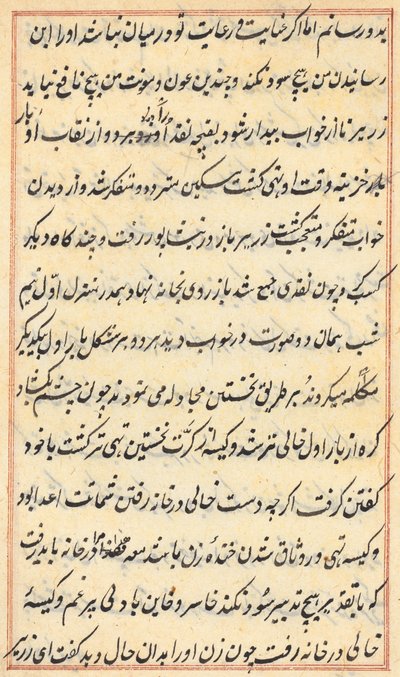 بدو رسانم اما اگر عنایت و رعایت تو در میان نباشد او را این
رسانیدن من هیچ سود نکند و چندین عون و مونت من هیچ نافع نیاید
زریر نا از خواب بیدار شود بقیچه نقد او را در ربود و از نقاب او بار
خزینه وقت او تهی گشت مسکین متردد و متفکر شد و از دیدن
خواب متفکر و متعجب گشت زریر باز در نیشابور رفت و چند گاه دیگر
کسب کرد و چون نقدی جمع شد باز روی بخانه نهاد همدر منزل اول نیم
شب همان دو صورت در خواب دید هر دو هم شکل بار اول با یکدیگر
مکالمه میکردند و بر طریق نخستین مجادله می نمودند چون چشم بگشاد
گره از بار اول خالی تر شد و کیسه از کرّت نخستین تهی تر گشت با خود
گفتن گرفت اگرچه دست خالی در خانه رفتن شماتت اعدا بود
و کیسه تهی در وثاق شدن خنده زن باشد مع هذا در خانه باید رفت
که با تقدیر هیچ تدبیر سود نکند خاسر و خاین با دلی پر غم و کیسهٔ
خالی در خانه رفت چون زن او را بدان حال دید گفت ای زریر